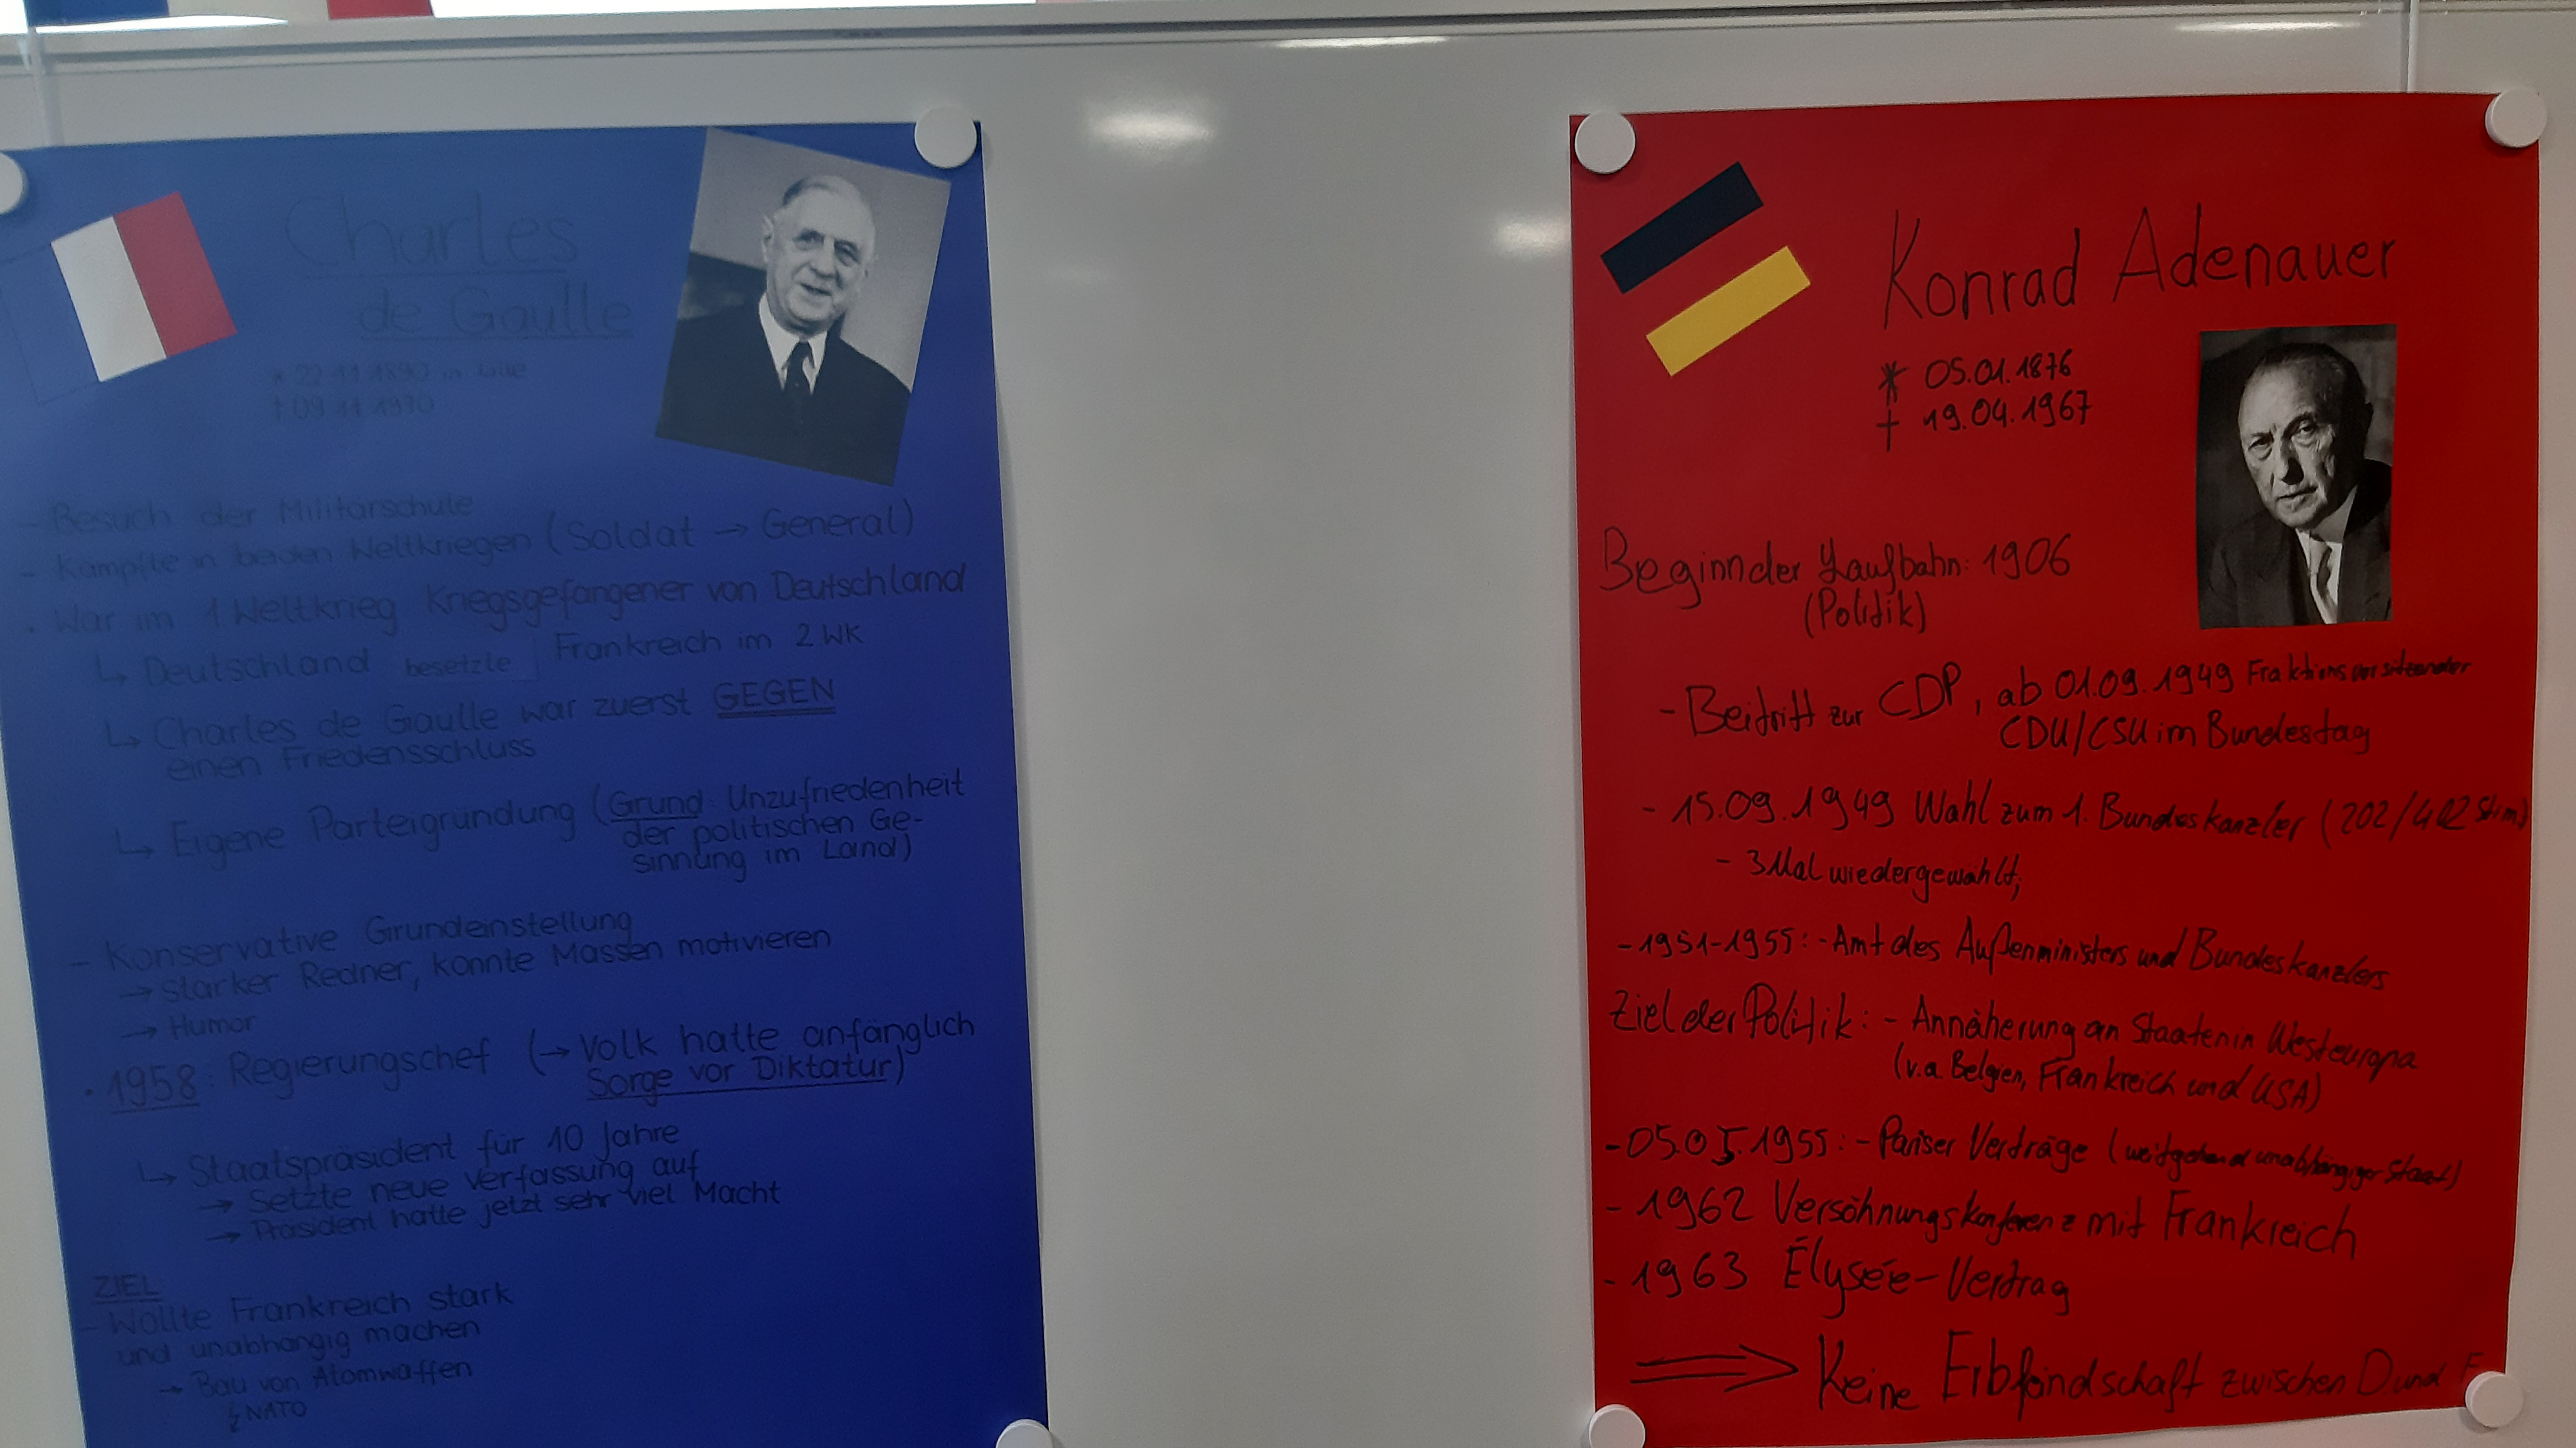 Charles
de Gaulle
* 22 11 1890 in Lille
† 09 11 1970
- Besuch der Militärschule
- Kämpfte in beiden Weltkriegen (Soldat → General)
• War im 1 Weltkrieg Kriegsgefangener von Deutschland
↳ Deutschland besetzte Frankreich im 2 WK
↳ Charles de Gaulle war zuerst GEGEN
einen Friedensschluss
↳ Eigene Parteigründung (Grund: Unzufriedenheit
der politischen Ge-
sinnung im Land)
- Konservative Grundeinstellung
→ starker Redner, konnte Massen motivieren
→ Humor
• 1958: Regierungschef (→ Volk hatte anfänglich
Sorge vor Diktatur)
↳ Staatspräsident für 10 Jahre
→ Setzte neue Verfassung auf
→ Präsident hatte jetzt sehr viel Macht
ZIEL
- Wollte Frankreich stark
und unabhängig machen
→ Bau von Atomwaffen
NATO
Konrad Adenauer
* 05.01.1876
† 19.04.1967
Beginn der Laufbahn: 1906
(Politik)
- Beitritt zur CDP, ab 01.09.1949 Fraktionsvorsitzender
CDU/CSU im Bundestag
- 15.09.1949 Wahl zum 1. Bundeskanzler (202/402 Stim)
- 3 Mal wiedergewählt,
- 1951-1955: - Amt des Außenministers und Bundeskanzlers
Ziel der Politik: - Annäherung an Staaten in Westeuropa
(v.a. Belgien, Frankreich und USA)
- 05.05.1955: - Pariser Verträge (weitgehend unabhängiger Staat)
- 1962 Versöhnungskonferenz mit Frankreich
- 1963 Élysée-Vertrag
⟹ Keine Erbfeindschaft zwischen D und F